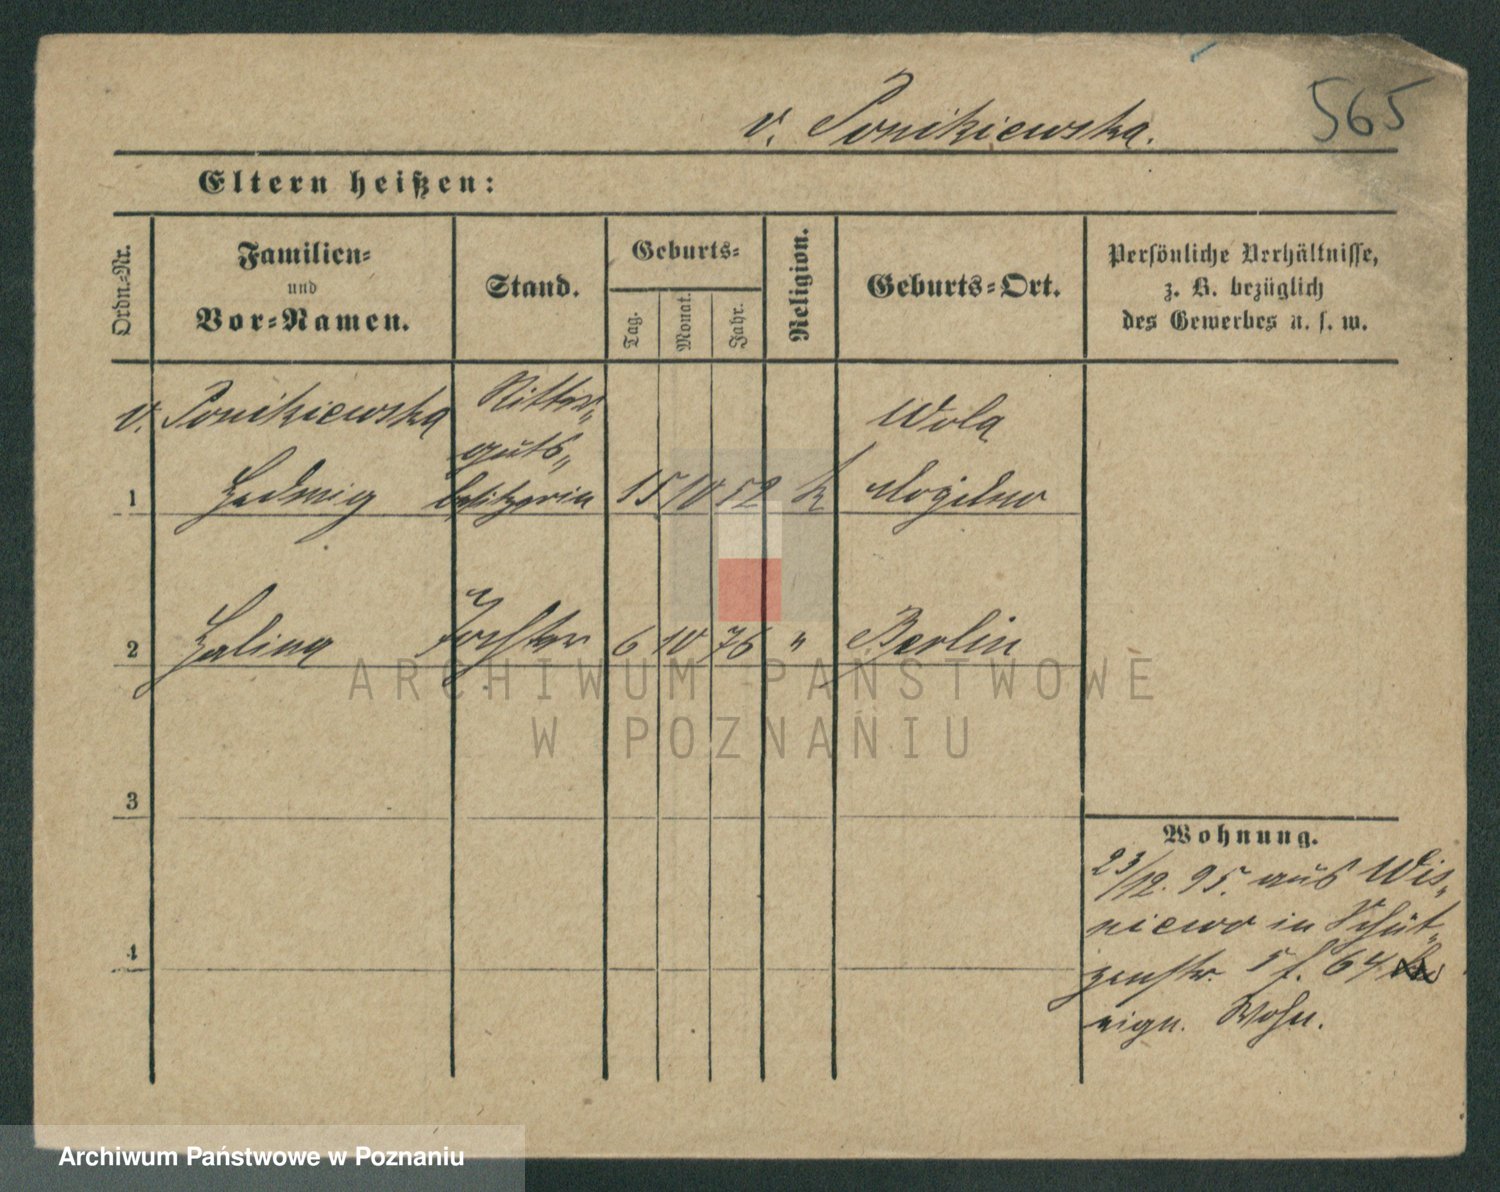 565
v. Ponikiewska.
Eltern heißen:
Ordn.-Nr.
Familien-
und
Vor-Namen.
Stand.
Geburts-
Tag.
Monat.
Jahr.
Religion.
Geburts-Ort.
Persönliche Verhältnisse,
z. B. bezüglich
des Gewerbes u. s. w.
v. Ponikiewska Ritter-
guts- Wola
1 Hedwig besitzerin 15 10 52 k Mogilno
2 Halina Tochter 6 10 76 " Berlin
ARCHIWUM PAŃSTWOWE
W POZNANIU
3
4
Wohnung.
23/12. 95. aus Wis-
niewo in Schüt-
zenstr. 5 f. 64
eign. Wohn.
Archiwum Państwowe w Poznaniu